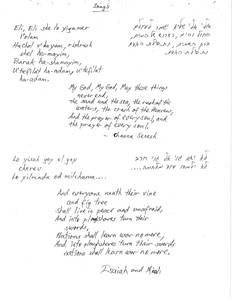 Songs
Eli, Eli she lo yigamer
l'olam
Hachol v'hayam, rishrush
shel ha-mayim,
Barak ha-shamayim,
U'tefilat ha-adam, u'tefilat
ha-adam.
My God, My God, May these things
never end,
the sand and the sea, the rush of the
waters, the crash of the Heavens,
And the prayer of every soul, and
the prayer of every soul.
- Channa Senesh
Lo yisah goy el goy
cherev
Lo yilmindu ed milchama...
And everyone neath their vine
and fig tree
shall live in peace and unafraid,
And into plowshares turn their
swords,
Nations shall learn war no more,
And into plowshares turn their swords
nations shall learn war no more.
Isaiah and Micah